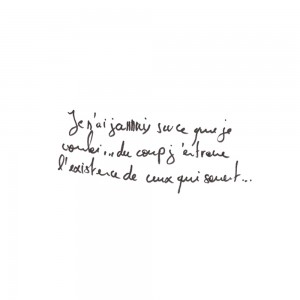 Je n'ai jamais su ce que je
voulai... du coup j'entrave
l'existence de ceux qui savent...